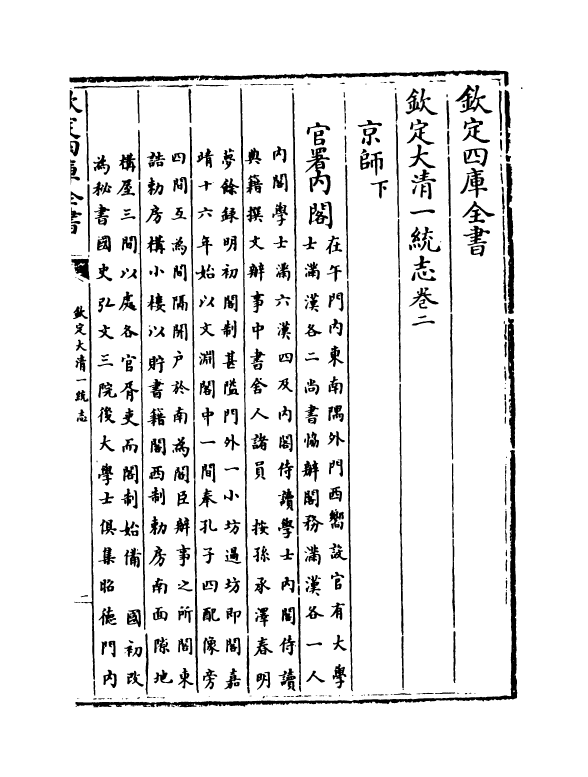 欽定四庫全書
欽定大清一統志卷二
京師下
官署內閣
在午門內東南隅外門西嚮設官有大學
士滿漢各二尚書協辦閣務滿漢各一人
內閣學士滿六漢四及內閣侍讀學士內閣侍讀
典籍撰文辦事中書舍人諸員 按孫承澤春明
夢餘録明初閣制甚隘門外一小坊過坊即閣嘉
靖十六年始以文淵閣中一間奉孔子四配像旁
四間互為間隔開户於南為閣臣辦事之所閣東
誥勅房構小樓以貯書籍閣西制勅房南面隙地
構屋三間以處各官胥吏而閣制始備 國初改
為秘書國史弘文三院後大學士俱集昭德門内
欽定四庫全書
欽定大清一統志
二